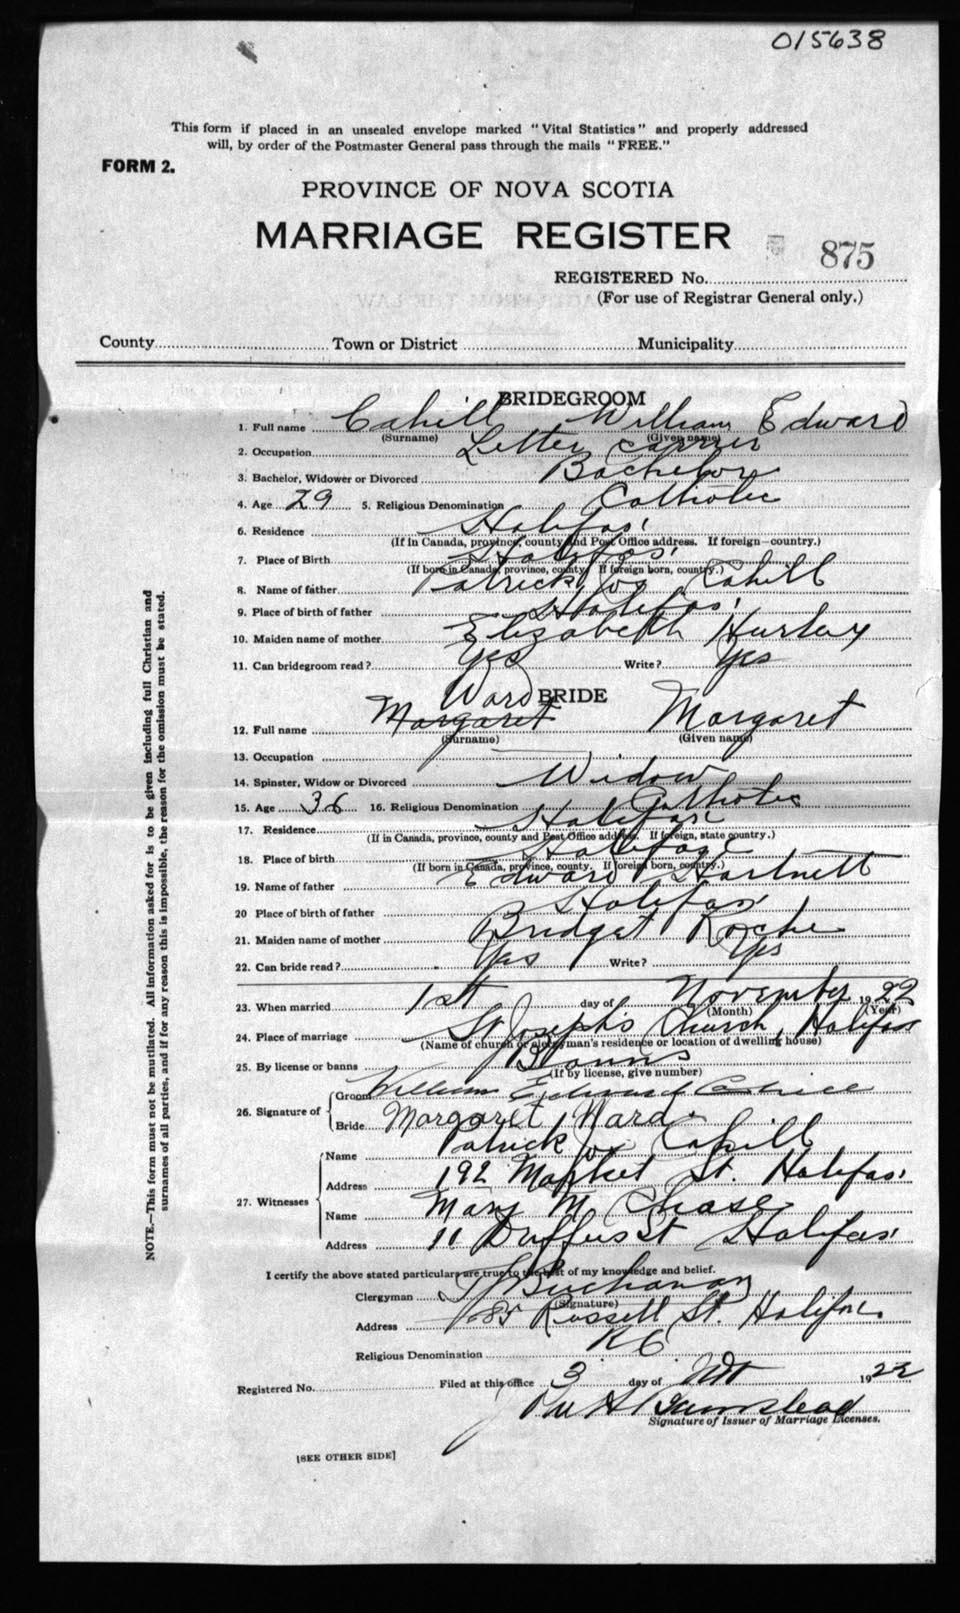 015638
This form if placed in an unsealed envelope marked "Vital Statistics" and properly addressed
will, by order of the Postmaster General pass through the mails "FREE."
FORM 2.
PROVINCE OF NOVA SCOTIA
MARRIAGE REGISTER
875
REGISTERED No.
(For use of Registrar General only.)
County Town or District Municipality
BRIDEGROOM
1. Full name Cahill William Edward
(Surname) (Given name)
2. Occupation Letter carrier
3. Bachelor, Widower or Divorced Bachelor
4. Age 29 5. Religious Denomination Catholic
6. Residence Halifax
(If in Canada, province, county and Post Office address. If foreign—country.)
7. Place of Birth Halifax
(If born in Canada, province, county. If foreign born, country.)
8. Name of father Patrick Jos Cahill
9. Place of birth of father Halifax
10. Maiden name of mother Elizabeth Hurley
11. Can bridegroom read? Yes Write? Yes
BRIDE
Ward
12. Full name Margaret Margaret
(Surname) (Given name)
13. Occupation
14. Spinster, Widow or Divorced Widow
15. Age 36 16. Religious Denomination Catholic
17. Residence Halifax
(If in Canada, province, county and Post Office address. If foreign, state country.)
18. Place of birth Halifax
(If born in Canada, province, county. If foreign born, country.)
19. Name of father Edward Hartnett
20 Place of birth of father Halifax
21. Maiden name of mother Bridget Roche
22. Can bride read? Yes Write? Yes
23. When married 1st day of November 1922
(Month) (Year)
24. Place of marriage St Joseph's Church, Halifax
(Name of church or clergyman's residence or location of dwelling house)
25. By license or banns Banns
(If by license, give number)
26. Signature of Groom William Edward Cahill
Bride Margaret Ward
27. Witnesses
Name Patrick Jos Cahill
Address 192 Market St. Halifax
Name Mary M Chase
Address 11 Duffus St Halifax
I certify the above stated particulars are true to the best of my knowledge and belief.
Clergyman Buchanan
(Signature)
Address 85 Russell St. Halifax
Religious Denomination RC
Registered No. Filed at this office 3 day of Nov 1922
Barnstead
Signature of Issuer of Marriage Licenses.
[SEE OTHER SIDE]
NOTE.—This form must not be mutilated. All information asked for is to be given including full Christian and
surnames of all parties, and if for any reason this is impossible, the reason for the omission must be stated.